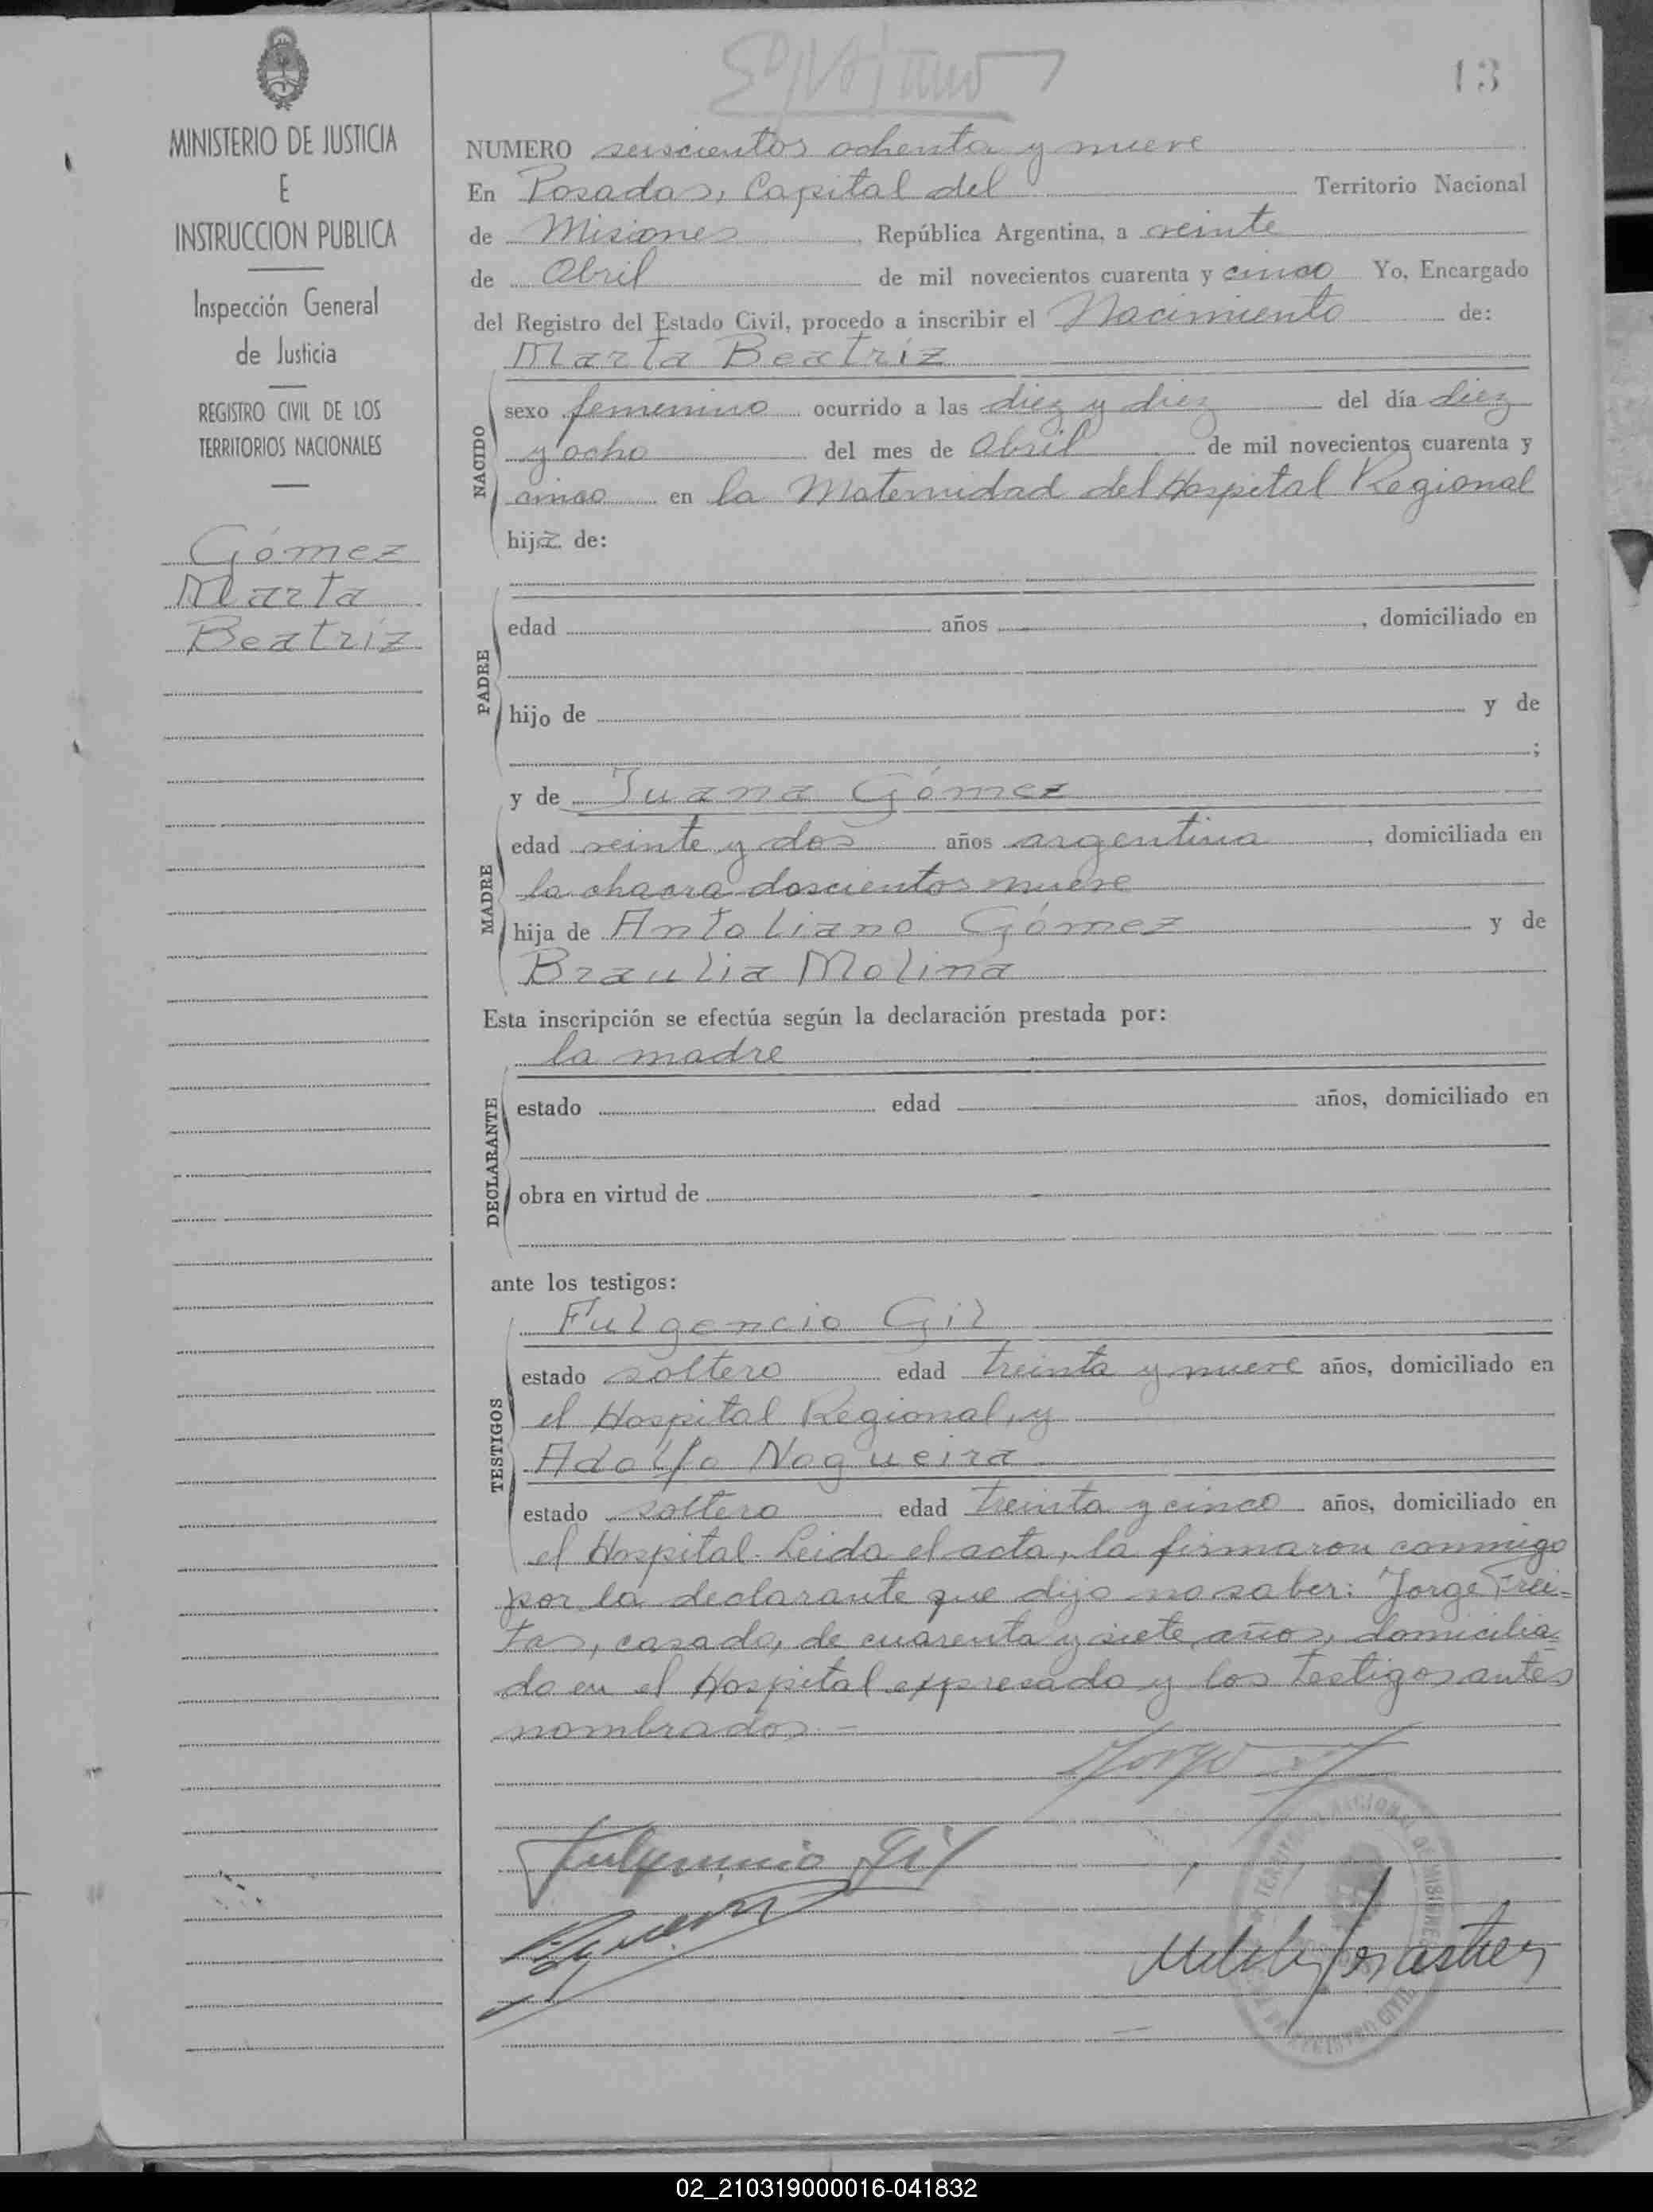 13
MINISTERIO DE JUSTICIA
E
INSTRUCCION PUBLICA
Inspección General
de Justicia
REGISTRO CIVIL DE LOS
TERRITORIOS NACIONALES
Gómez
Marta
Beatríz
NUMERO seiscientos ochenta y nueve
En Posadas, Capital del Territorio Nacional
de Misiones, República Argentina, a veinte
de Abril de mil novecientos cuarenta y cinco Yo, Encargado
del Registro del Estado Civil, procedo a inscribir el Nacimiento de:
Marta Beatríz
NACIDO
sexo femenino ocurrido a las diez y diez del día diez
y ocho del mes de Abril de mil novecientos cuarenta y
cinco en la Maternidad del Hospital Regional
hija de:
PADRE
edad años , domiciliado en
hijo de y de
;
y de Juana Gómez
MADRE
edad veinte y dos años argentina, domiciliada en
la chacra doscientos nueve
hija de Antoliano Gómez y de
Braulia Molina
Esta inscripción se efectúa según la declaración prestada por:
la madre
DECLARANTE
estado edad años, domiciliado en
obra en virtud de
ante los testigos:
Fulgencio Gil
TESTIGOS
estado soltero edad treinta y nueve años, domiciliado en
el Hospital Regional, y
Adolfo Nogueira
estado soltero edad treinta y cinco años, domiciliado en
el Hospital. Leida el acta, la firmaron conmigo
por la declarante que dijo no saber: Jorge Frei=
tas, casado, de cuarenta y siete años, domicilia=
do en el Hospital expresado y los testigos antes
nombrados.-
Jorge
Fulgencio Gil
02_210319000016-041832